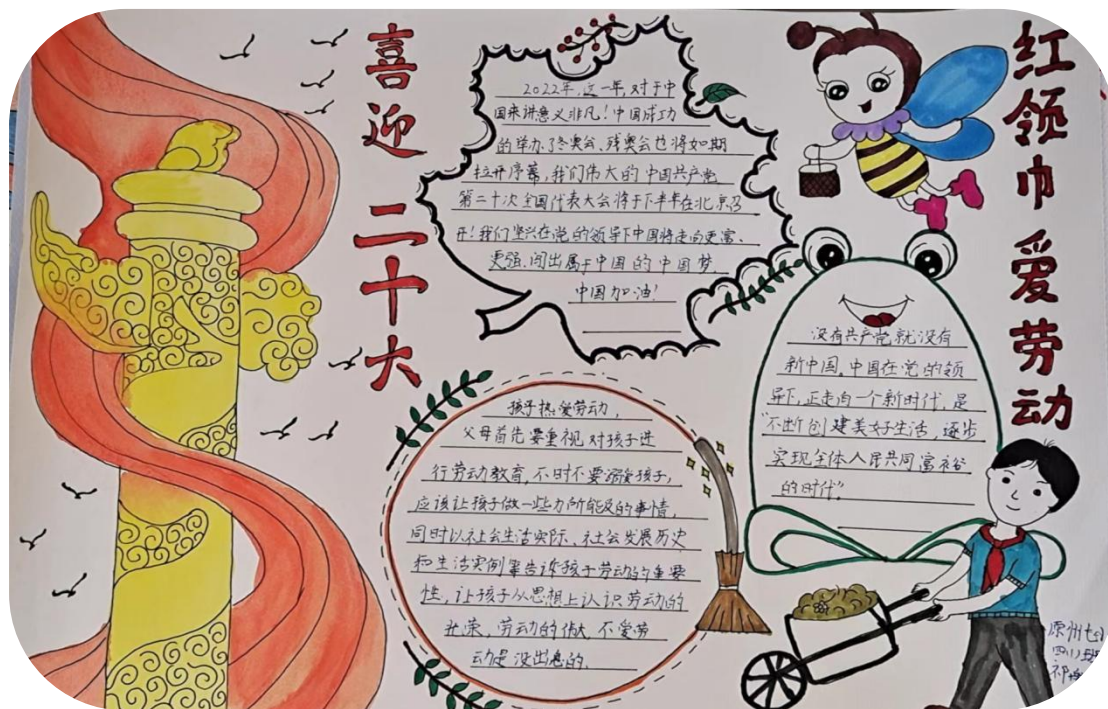 喜迎二十大
2022年,这一年,对于中
国来讲意义非凡!中国成功
的举办了冬奥会、残奥会也将如期
拉开序幕,我们伟大的中国共产党
第二十次全国代表大会将于下半年在北京召
开!我们坚兴在党的领导下中国将走向更富、
更强.闯出属于中国的中国梦.
中国加油!
红领巾 爱劳动
没有共产党就没有
新中国.中国在党的领
导下,正走向一个新时代,是
"不断创建美好生活,逐步
实现全体人民共同富裕
的时代".
孩子热爱劳动,
父母首先要重视对孩子进
行劳动教育,不时不要溺爱孩子,
应该让孩子做一些力所能及的事情,
同时以社会生活实际、社会发展历史
和生活实例来告诉孩子劳动的重要
性,让孩子从思想上认识劳动的
光荣,劳动的伟大,不爱劳
动是没出息的.
原州七小
四(1)班
祁